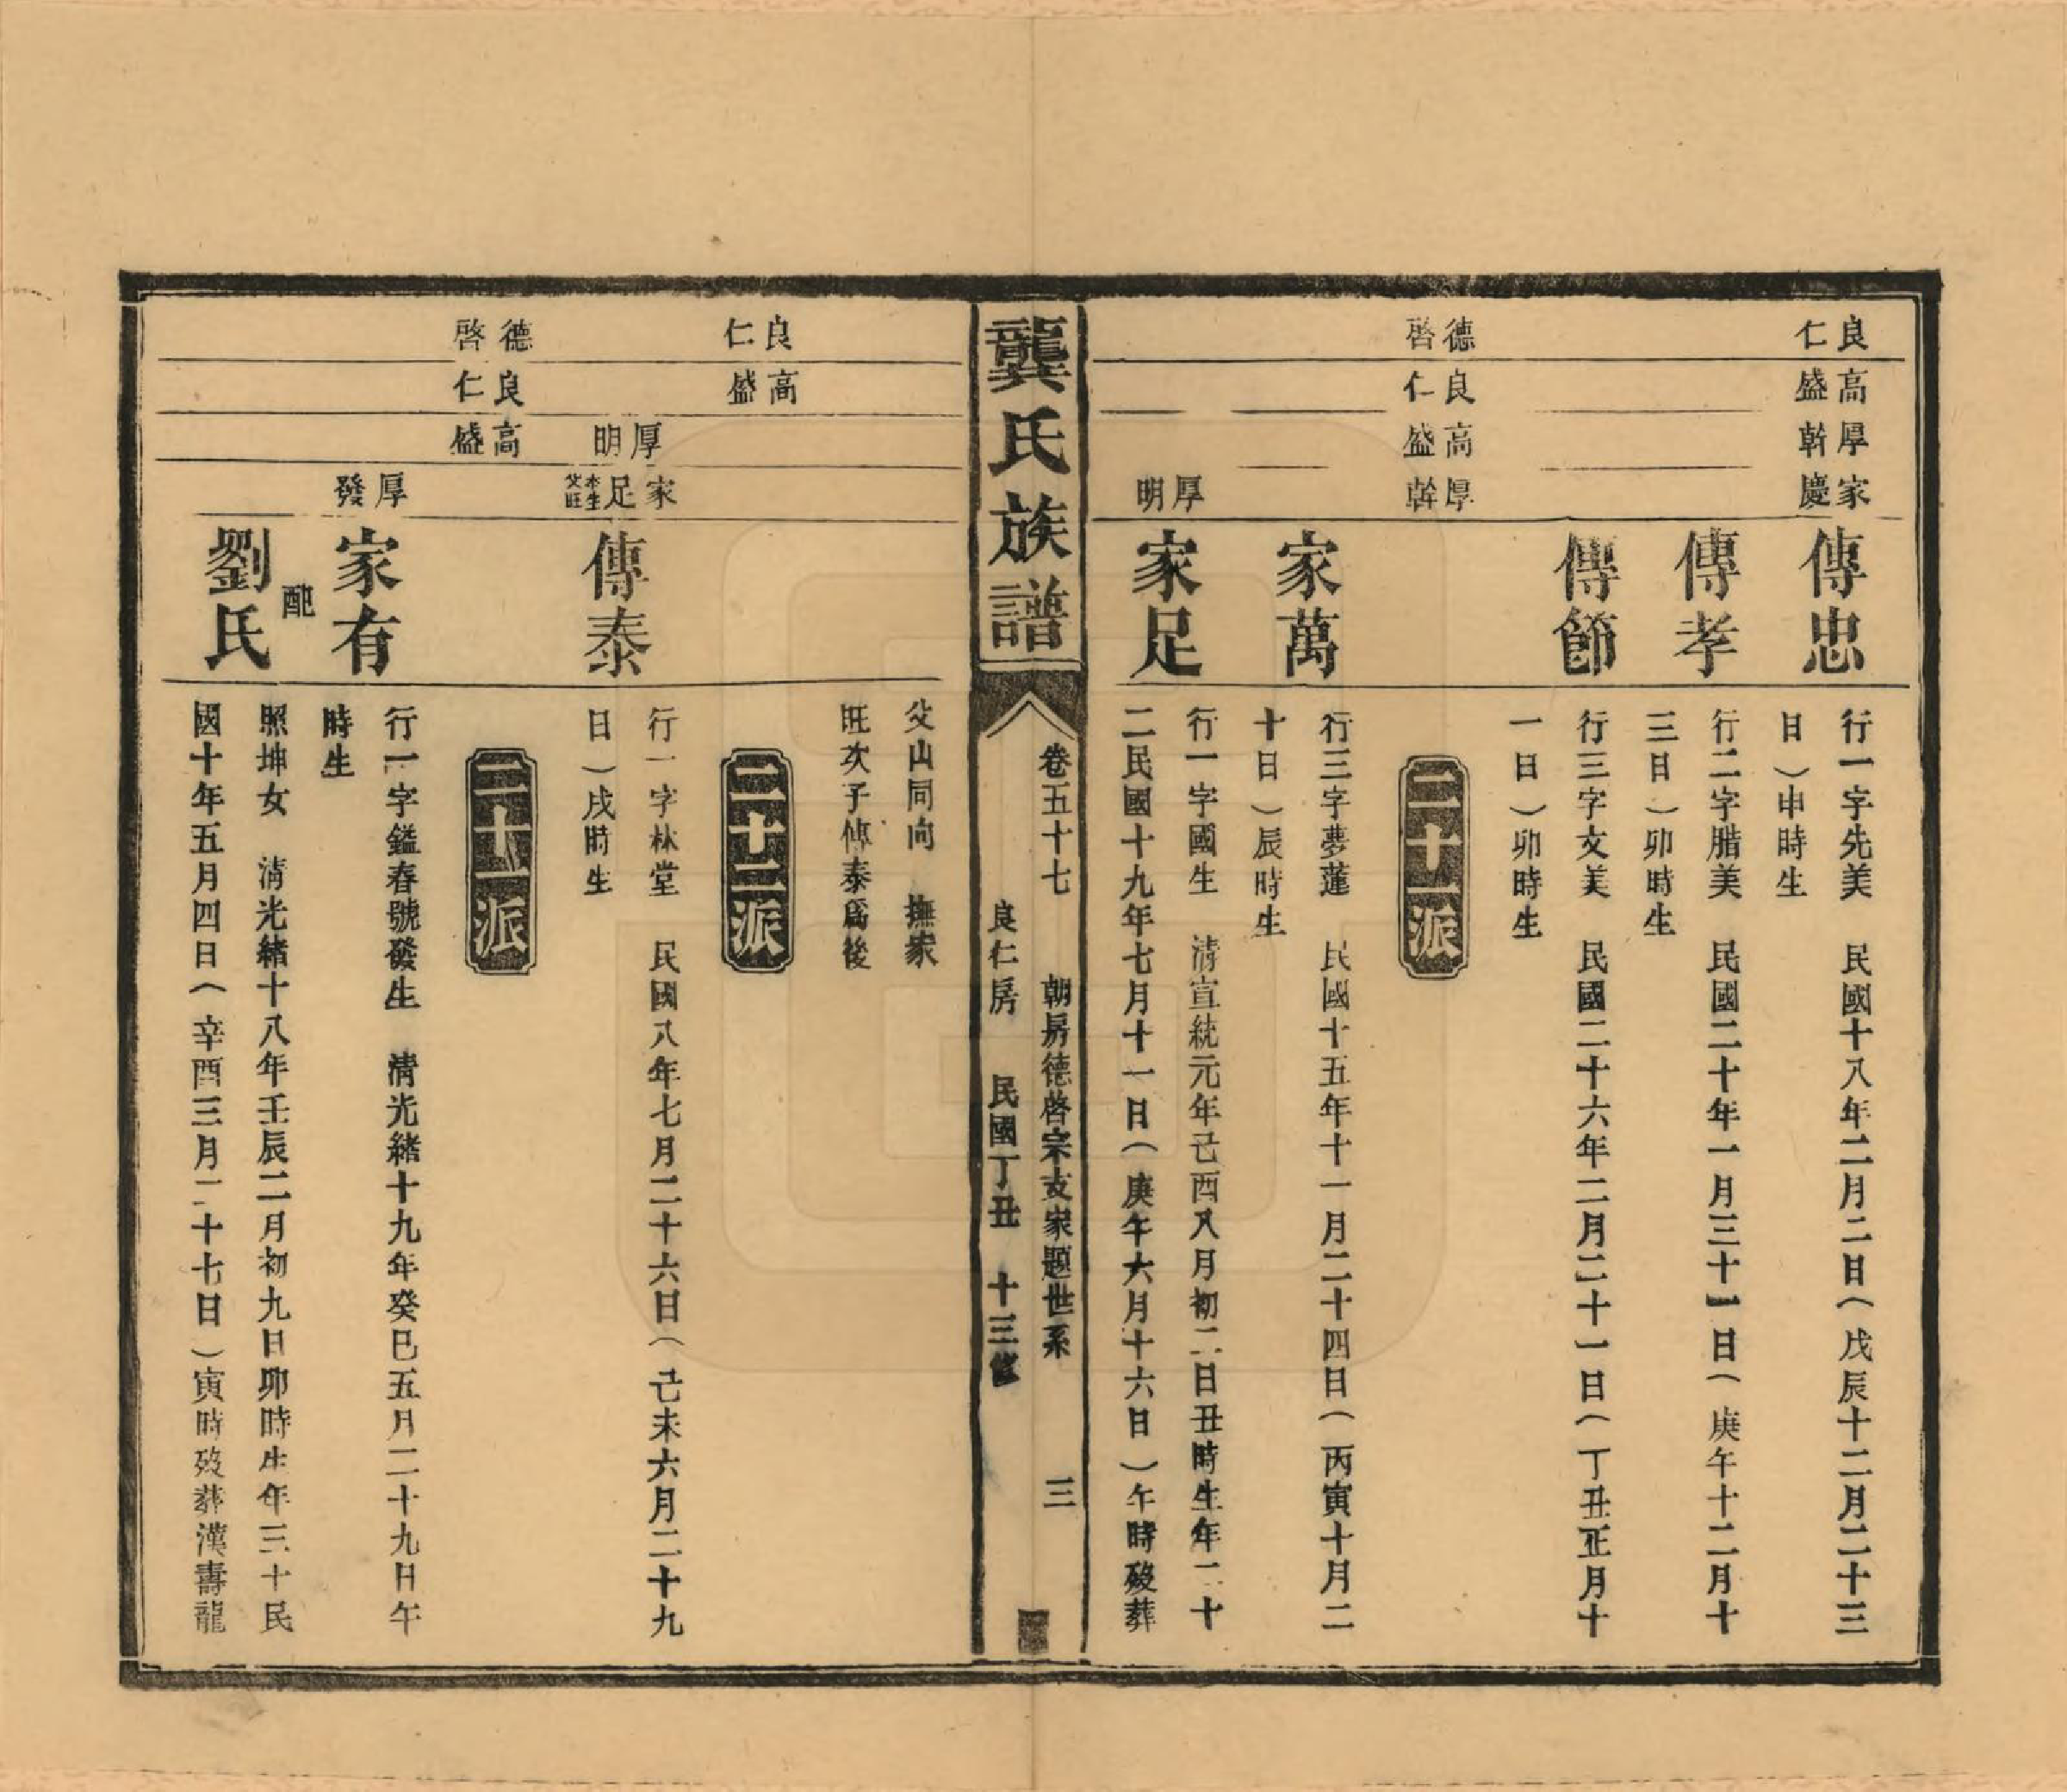 良仁
高盛
厚斡
家慶
傳忠
行一字先美　民國十八年二月二日（戊辰十二月二十三
日）申時生
傳孝
行二字腊美　民國二十年一月三十一日（庚午十二月十
三日）卯時生
傳節
行三字文美　民國二十六年二月二十一日（丁丑正月十
一日）卯時生
德啓
良仁
高盛
厚斡
二十一派
家萬
行三字夢蓮　民國十五年十一月二十四日（丙寅十月二
十日）辰時生
厚明
家足
行一字國生　清宣統元年己酉八月初二日丑時生年二十
二民國十九年七月十一日（庚午六月十六日）午時歿葬
龔氏族譜
卷五十七　朝房德啓宗支家題世系　三
良仁房　民國丁丑　十三修
父山同向　撫家
旺次子傳泰爲後
良仁
高盛
二十二派
厚明
家足本生父旺
傳泰
行一字林堂　民國八年七月二十六日（己未六月二十九
日）戌時生
德啓
良仁
高盛
二十一派
厚發
家有
行一字鎰春號發生　清光緒十九年癸巳五月二十九日午
時生
配
劉氏
照坤女　清光緒十八年壬辰二月初九日卯時生年三十民
國十年五月四日（辛酉三月二十七日）寅時歿葬漢壽龍